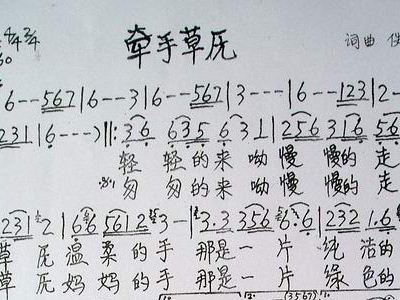 4/4 3/4 牵手草原
词曲
6--567|6--3|6--567|3---|6--123|2-
231|6---)‖:36 635 6 31|256 316 56
轻 轻的来呦慢 慢的 走
匆 匆的来呦慢 慢的 走
231 2|66 561 2 3-|3.3 356 6.6|232 1.6
草 原温柔的手 那是一 片 纯 洁的
草 原妈妈的手 那是一 片 绿 色的